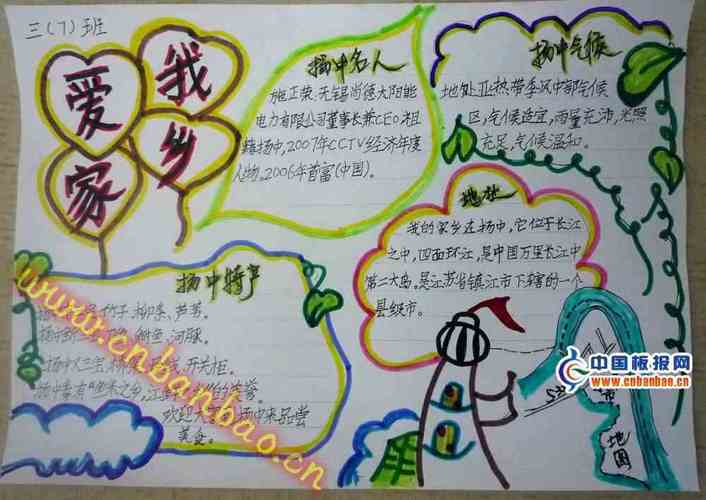 三(7)班
我
爱
乡
家
扬中名人
施正荣:无锡尚德太阳能
电力有限公司董事长兼CEO祖
籍扬中,2007年CCTV经济年度
人物。2006年首富(中国)。
扬中气候
地处亚热带季风中部气候
区,气候适宜,雨量充沛,光照
充足,气候温和。
地址
我的家乡在扬中,它位于长江
之中,四面环江,是中国万里长江中
第二大岛。是江苏省镇江市下辖的一个
县级市。
扬中特产
竹子、柳条、芦苇。
鲥鱼、河豚。
开关柜。
鱼米之乡,江
欢迎 扬中来品尝
美食。
地图
www.cnbanbao.cn
中国板报网
www.cnbanbao.cn